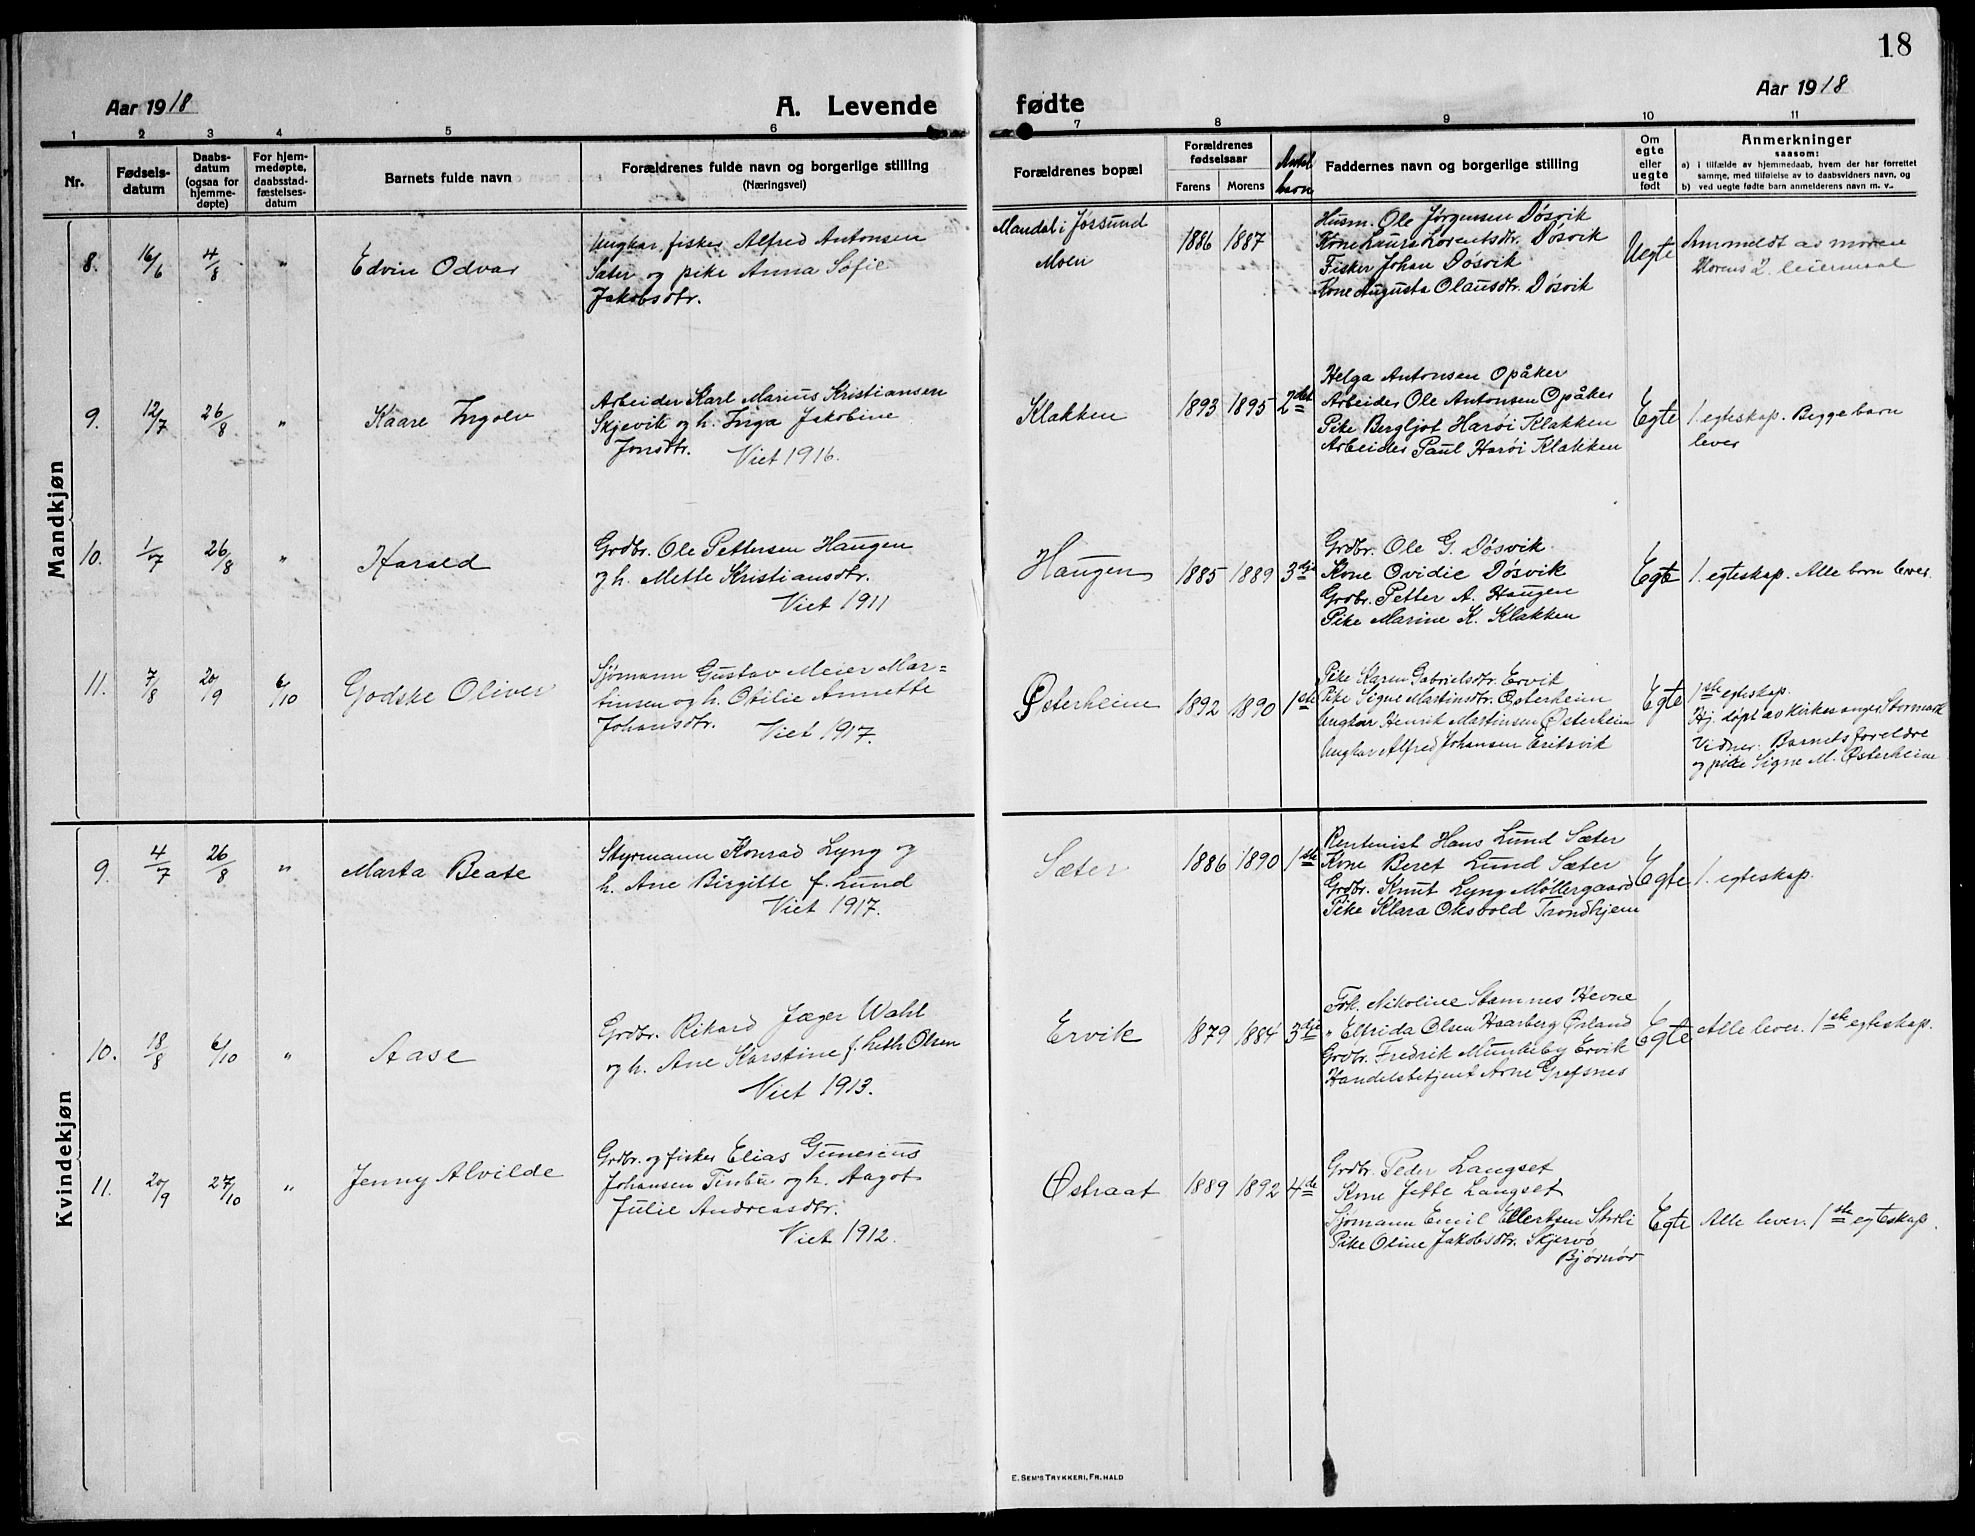 18
Aar 1918
A. Levende fødte
Aar 1918
1 2 3 4 5 6 7 8 9 10 11
Nr.
Fødsels-
datum
Daabs-
datum
(ogsaa for
hjemme-
døpte)
For hjem-
medøpte,
daabsstad-
fæstelses-
datum
Barnets fulde navn
Forældrenes fulde navn og borgerlige stilling
(Næringsvei)
Forældrenes bopæl
Forældrenes
fødselsaar
Farens Morens
Antal
barn
Faddernes navn og borgerlige stilling
Om
egte
eller
uegte
født
Anmerkninger
saasom:
a) i tilfælde av hjemmedaab, hvem der har forrettet
samme, med tilføielse av to daabsvidners navn, og
b) ved uegte fødte barn anmelderens navn m. v.
Mandkjøn
8. 16/6 4/8 " Edvin Odvar
Ungkar, fisker Alfred Antonsen
Sæter og pike Anna Sofie
Jakobsdtr.
Mandal i Jøssund
Moen
1886 1887
Husm. Ole Jørgensen Døsvik
Kone Laura Lorentsdtr. Døsvik
Fisker Johan Døsvik
Kone Augusta Olausdtr. Døsvik
Uegte
Anmeldt av moren
Morens 2. leiermaal
9. 12/7 26/8 " Kaare Ingolv
Arbeider Karl Marius Kristiansen
Skjevik og h. Inga Jakobine
Jonsdtr. Viet 1916.
Klakken
1893 1895 2det
Helga Antonsen Opåker
Arbeider Ole Antonsen Opåker
Pike Bergljot Harøi Klakken
Arbeider Paul Harøi Klakken
Egte
1. egteskap. Begge barn
lever
10. 1/7 26/8 " Harald
Grdbr. Ole Pettersen Haugen
og h. Mette Kristiansdtr.
Viet 1911
Haugen
1885 1889 3dje
Grdbr. Ole G. Døsvik
Kone Ovidie Døsvik
Grdbr. Petter A. Haugen
Pike Marine K. Klakken
Egte
1. egteskap. Alle barn lever.
11. 7/8 20/9 6/10 Godske Oliver
Sjømann Gustav Meier Mar=
tinsen og h. Otilie Annette
Johansdtr. Viet 1917.
Østerheim
1892 1890 1ste
Pike Karen Gabrielsdtr. Ervik
Pike Signe Martinsdtr. Østerheim
Ungkar Henrik Martinsen Østerheim
Ungkar Alfred Johansen Eritsvik
Egte
1ste egteskap.
Hj. døpt av kirkesanger Stormark
Vidner: Barnets foreldre
og pike Signe M. Østerheim
Kvindekjøn
9. 4/7 26/8 " Marta Beate
Styrmann Konrad Lyng og
h. Ane Birgitte f. Lund
Viet 1917.
Sæter
1886 1890 1ste
Rentenist Hans Lund Sæter
Kone Beret Lund Sæter
Grdbr. Knut Lyng Møllergaard
Pike Klara Oksvold Trondhjem
Egte
1. egteskap.
10. 18/8 6/10 " Aase
Grdbr. Rikard Jæger Wahl
og h. Ane Karstine f. Leth Olsen
Viet 1913.
Ervik
1879 1884 3dje
Frk. Nikoline Stamnes Hevne
" Elfrida Olsen Haarberg Ørland
Grdbr. Fredrik Munkeby Ervik
Handelsbetjent Arne Grefsnes
Egte
Alle lever. 1ste egteskap.
11. 20/9 27/10 " Jenny Alvilde
Grdbr. og fisker Elias Gunerius
Johansen Tinbu og h. Aagot
Julie Andreasdtr.
Viet 1912.
Østraat
1889 1892 4de
Grdbr. Peder Langset
Kone Jette Langset
Sjømann Emil Ellertsen Stroli
Pike Oline Jakobsdtr. Skjervø
Bjørnør
Egte
Alle lever. 1ste egteskap.
E. SEM'S TRYKKERI, FR. HALD